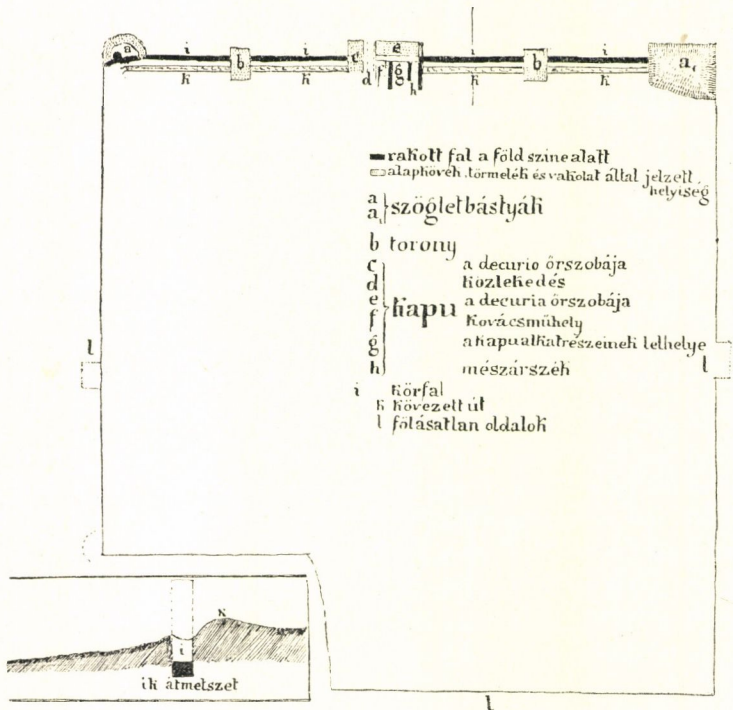 a i b i c e i b i a,
k k d f g h k k
rakott fal a föld szine alatt
alapkövek, törmelék és vakolat által jelzett
helyiség
a
a, szögletbástyák
b torony
c a decurio őrszobája
d közlekedés
e kapu a decuria őrszobája
f kovácsműhely
g a kapu alkatrészeinek lelhelye
h mészárszék
i körfal
k kövezett út
l fölásatlan oldalok
l l
k
i
ik átmetszet
l